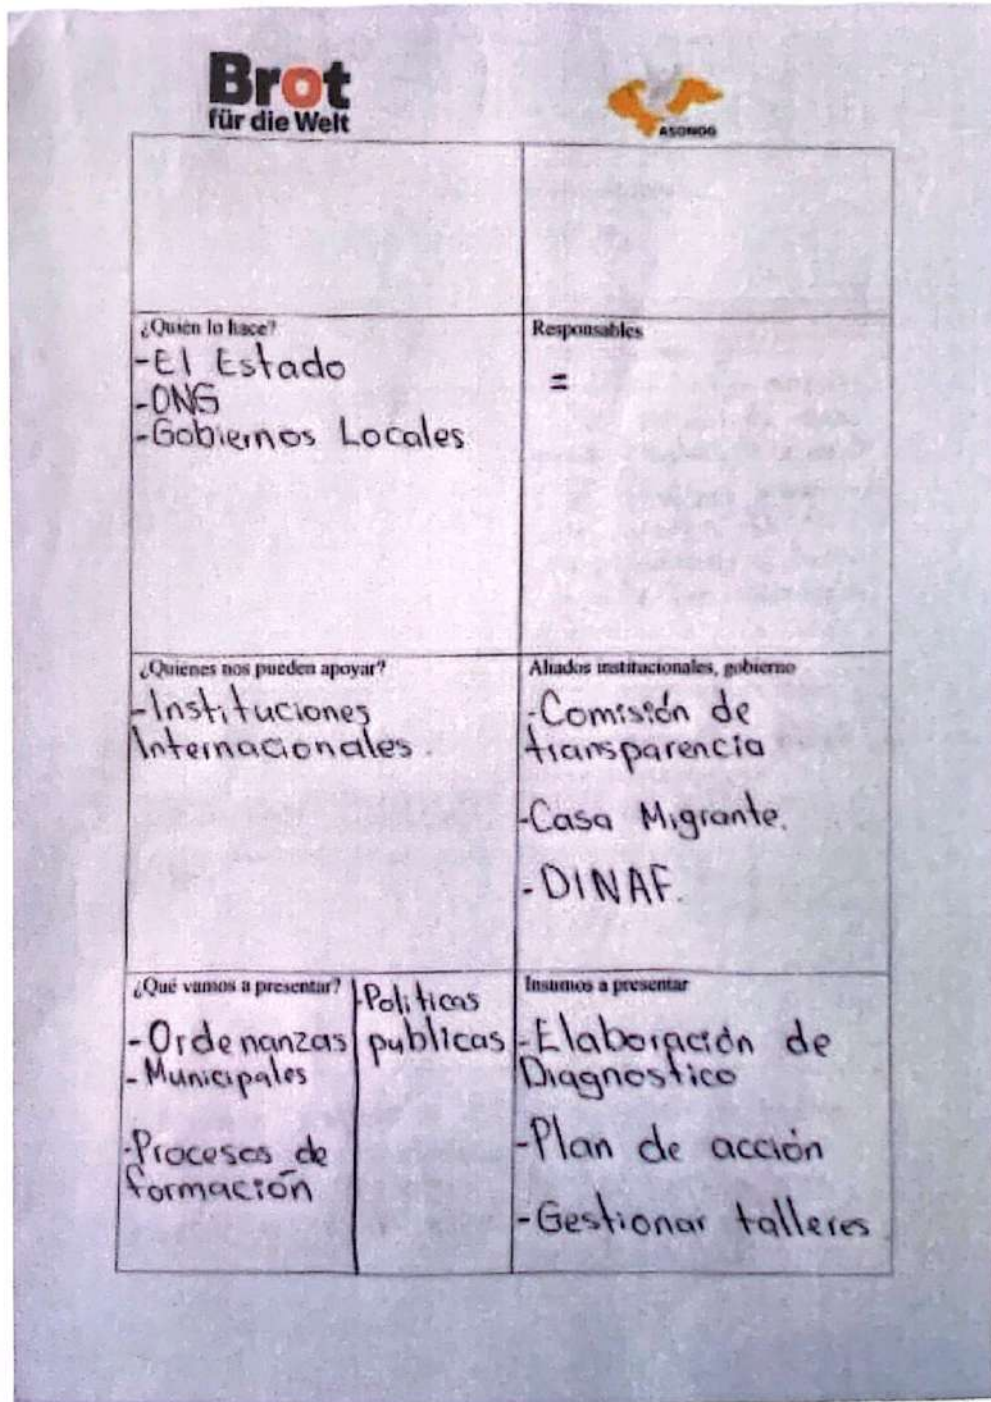 Brot
für die Welt
ASONOG
¿Quién lo hace?
-El Estado
-ONG
-Gobiernos Locales
Responsables
=
¿Quienes nos pueden apoyar?
-Instituciones
Internacionales.
Aliados institucionales, gobierno
-Comisión de
transparencia
-Casa Migrante.
-DINAF.
¿Qué vamos a presentar?
-Ordenanzas
-Municipales
-Procesos de
formación
-Politicas
publicas
Insumos a presentar
-Elaboración de
Diagnostico
-Plan de acción
-Gestionar talleres